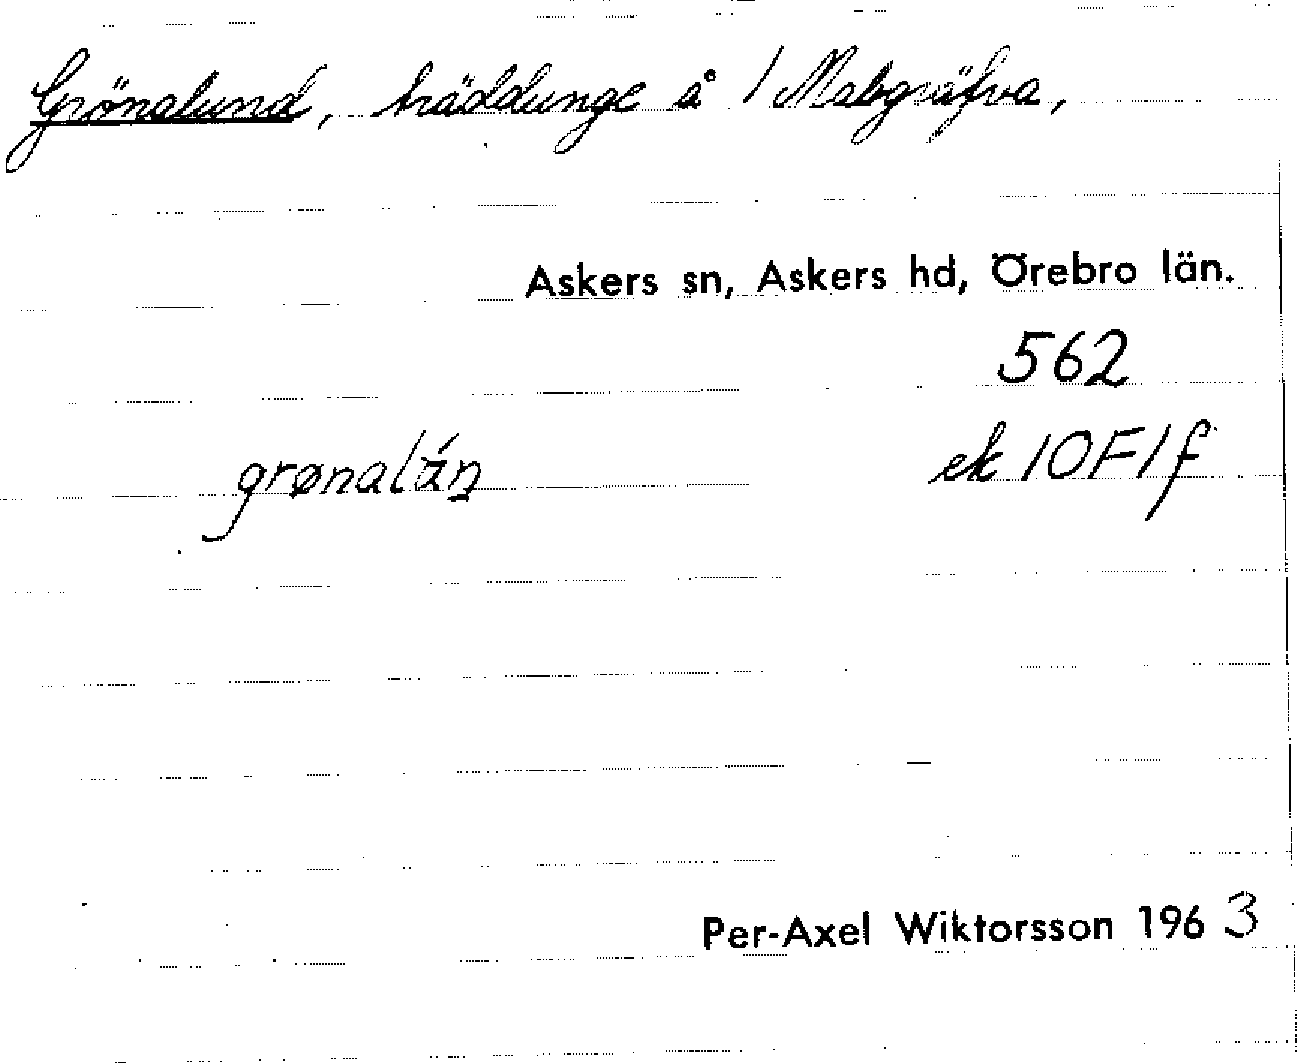 Grönalund, träddunge å 1 Malmgräfva,
Askers sn, Askers hd, Örebro län.
562
ek 10F1f
Per-Axel Wiktorsson 1963